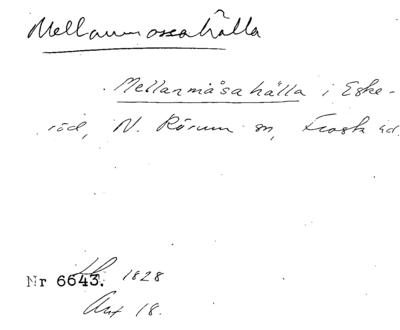 Mellanmossahälla
Mellanmåsahälla i Eske-
röd, N. Rörum sn, Frosta hd.
Nr 6643. 1828
Akt 18.